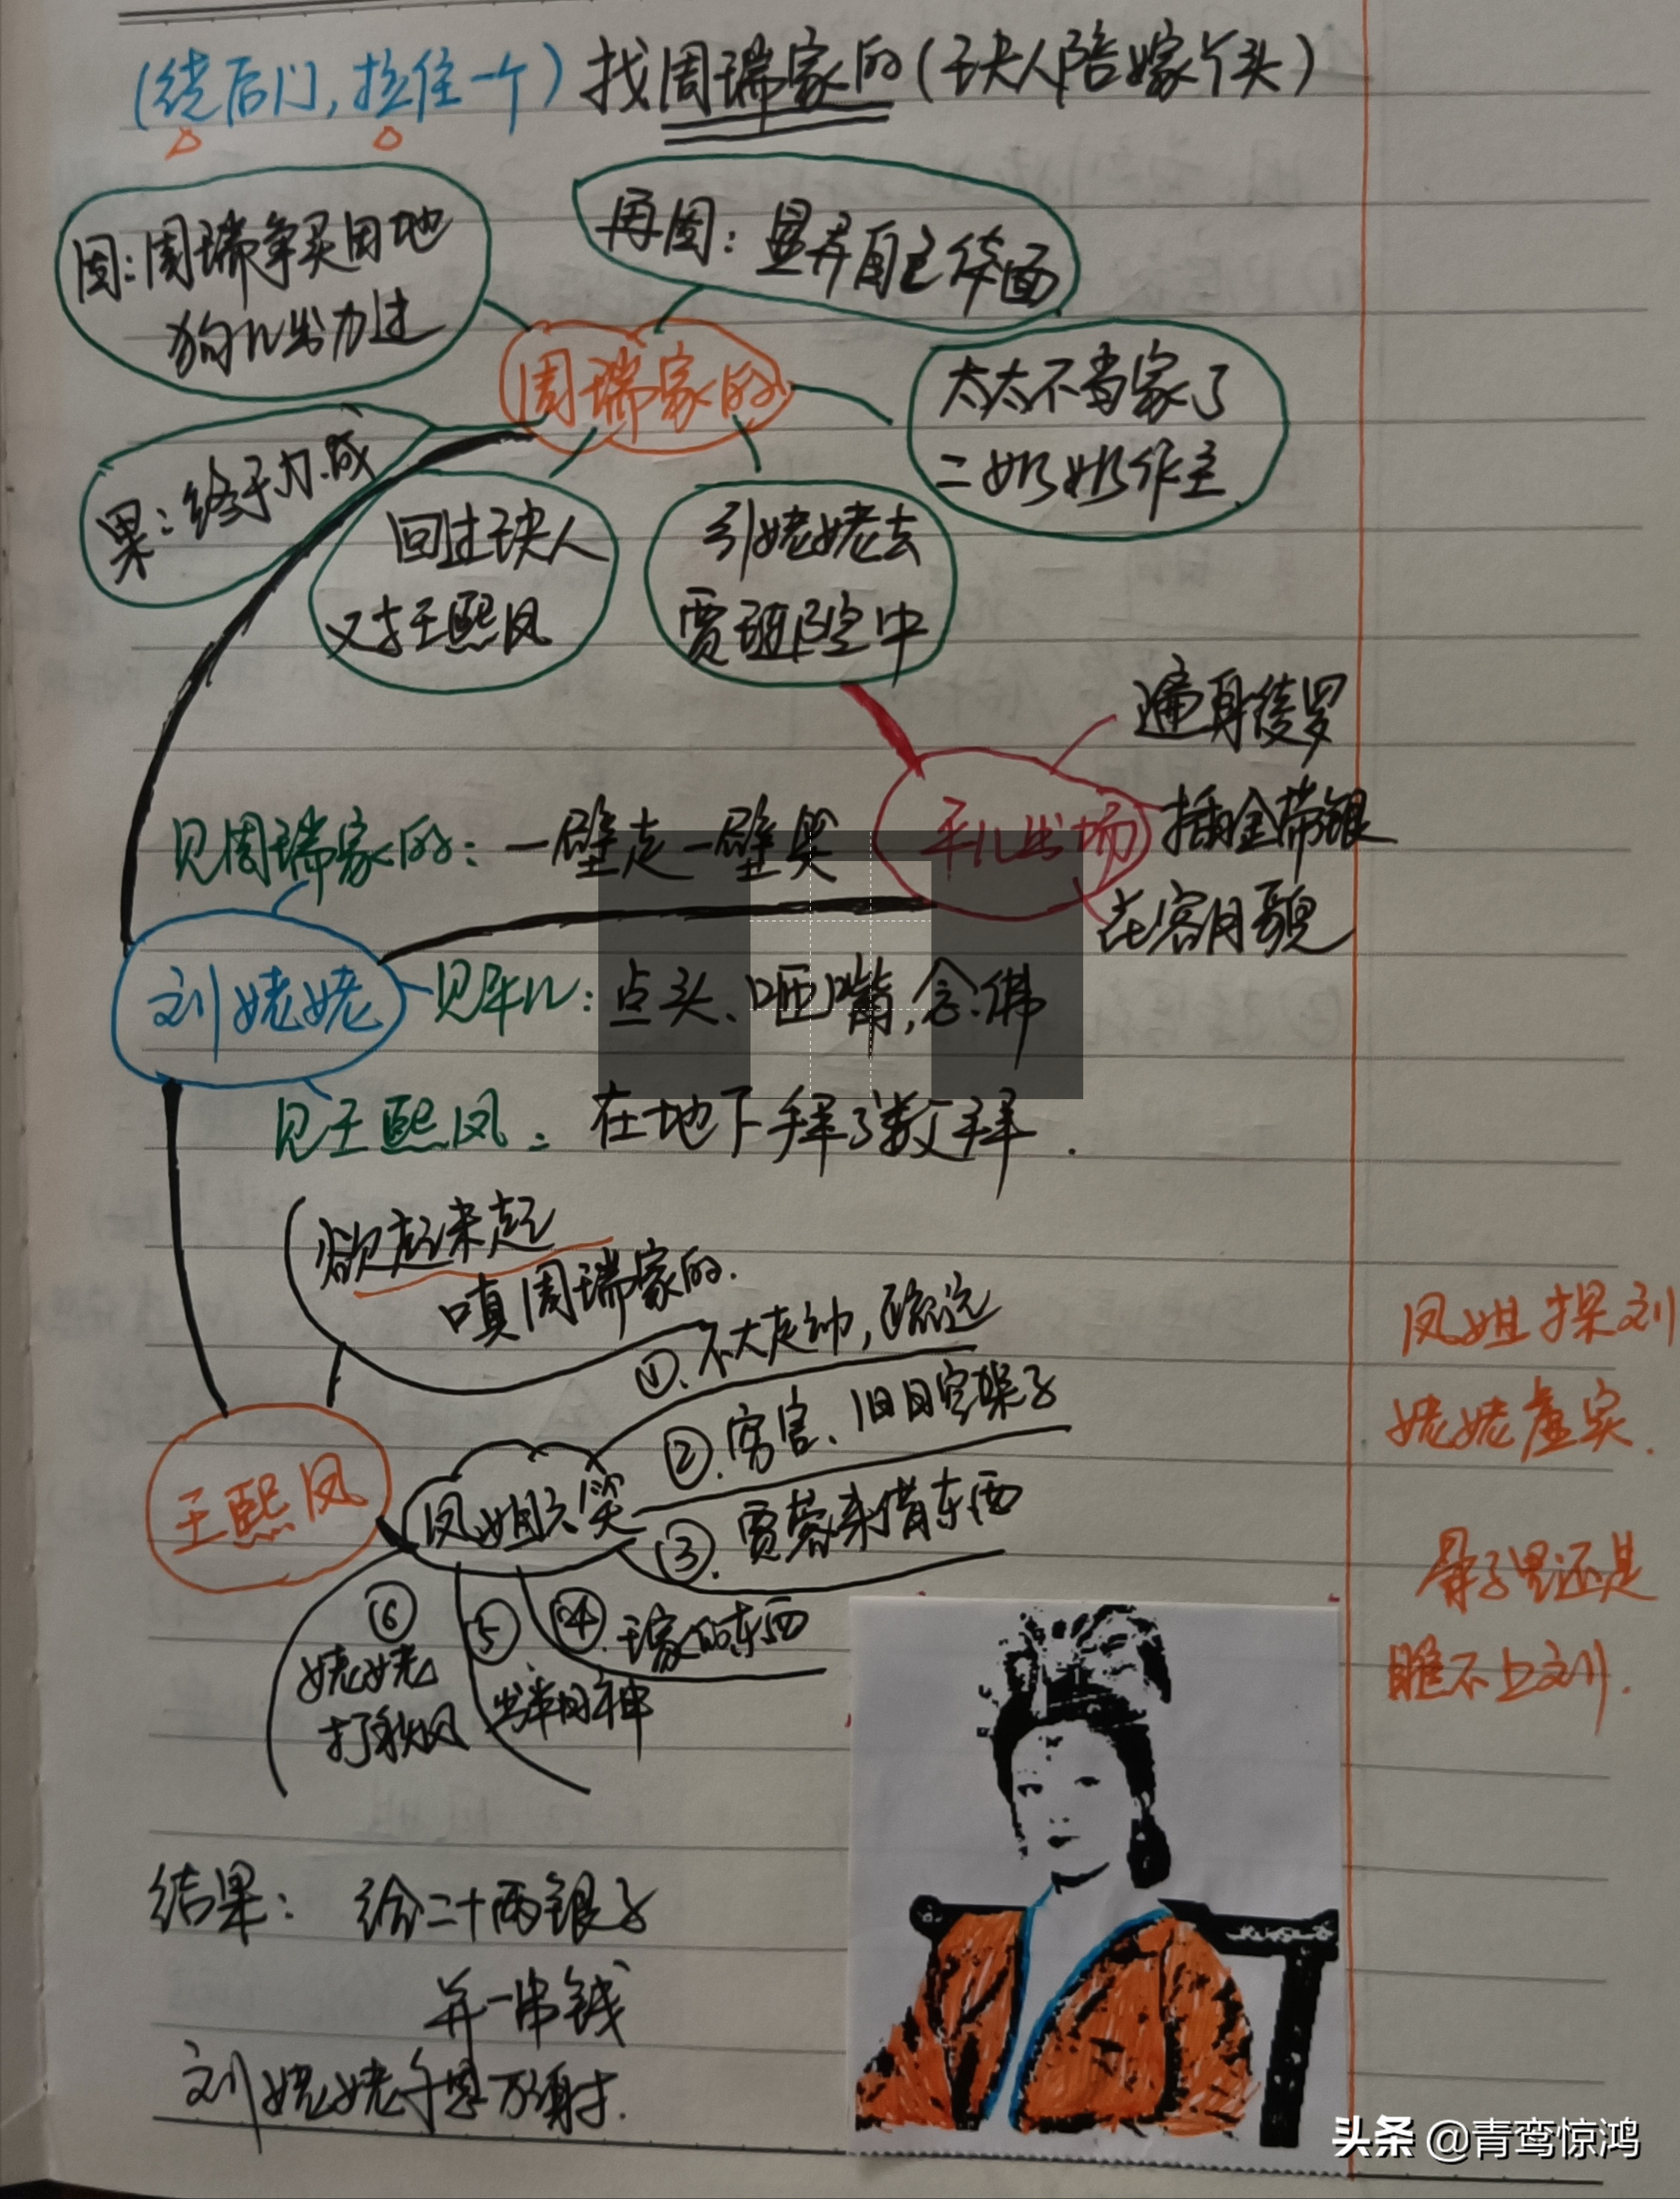 (绕后门,拉住一个)找周瑞家的(王夫人陪嫁丫头)
因:周瑞争买田地
狗儿出力过
再因:显弄自己体面
周瑞家的
太太不当家了
二奶奶作主
果:终于办成
回过王夫人
又才王熙凤
引姥姥去
贾琏院中
遍身绫罗
插金带银
花容月貌
平儿出场
见周瑞家的:一壁走一壁笑
刘姥姥
见平儿:点头、咂嘴,念佛
见王熙凤:在地下拜了数拜.
欲起未起
嗔周瑞家的.
①.不大走动,疏远
②.穷官、旧日空架子
③.贾蓉来借东西
④.王家的东西
⑤
出半日神
⑥
姥姥
打秋风
王熙凤
凤姐六笑
凤姐探刘
姥姥虚实.
骨子里还是
瞧不上刘.
结果: 给二十两银子
并一串钱
刘姥姥千恩万谢.
头条 @青鸾惊鸿